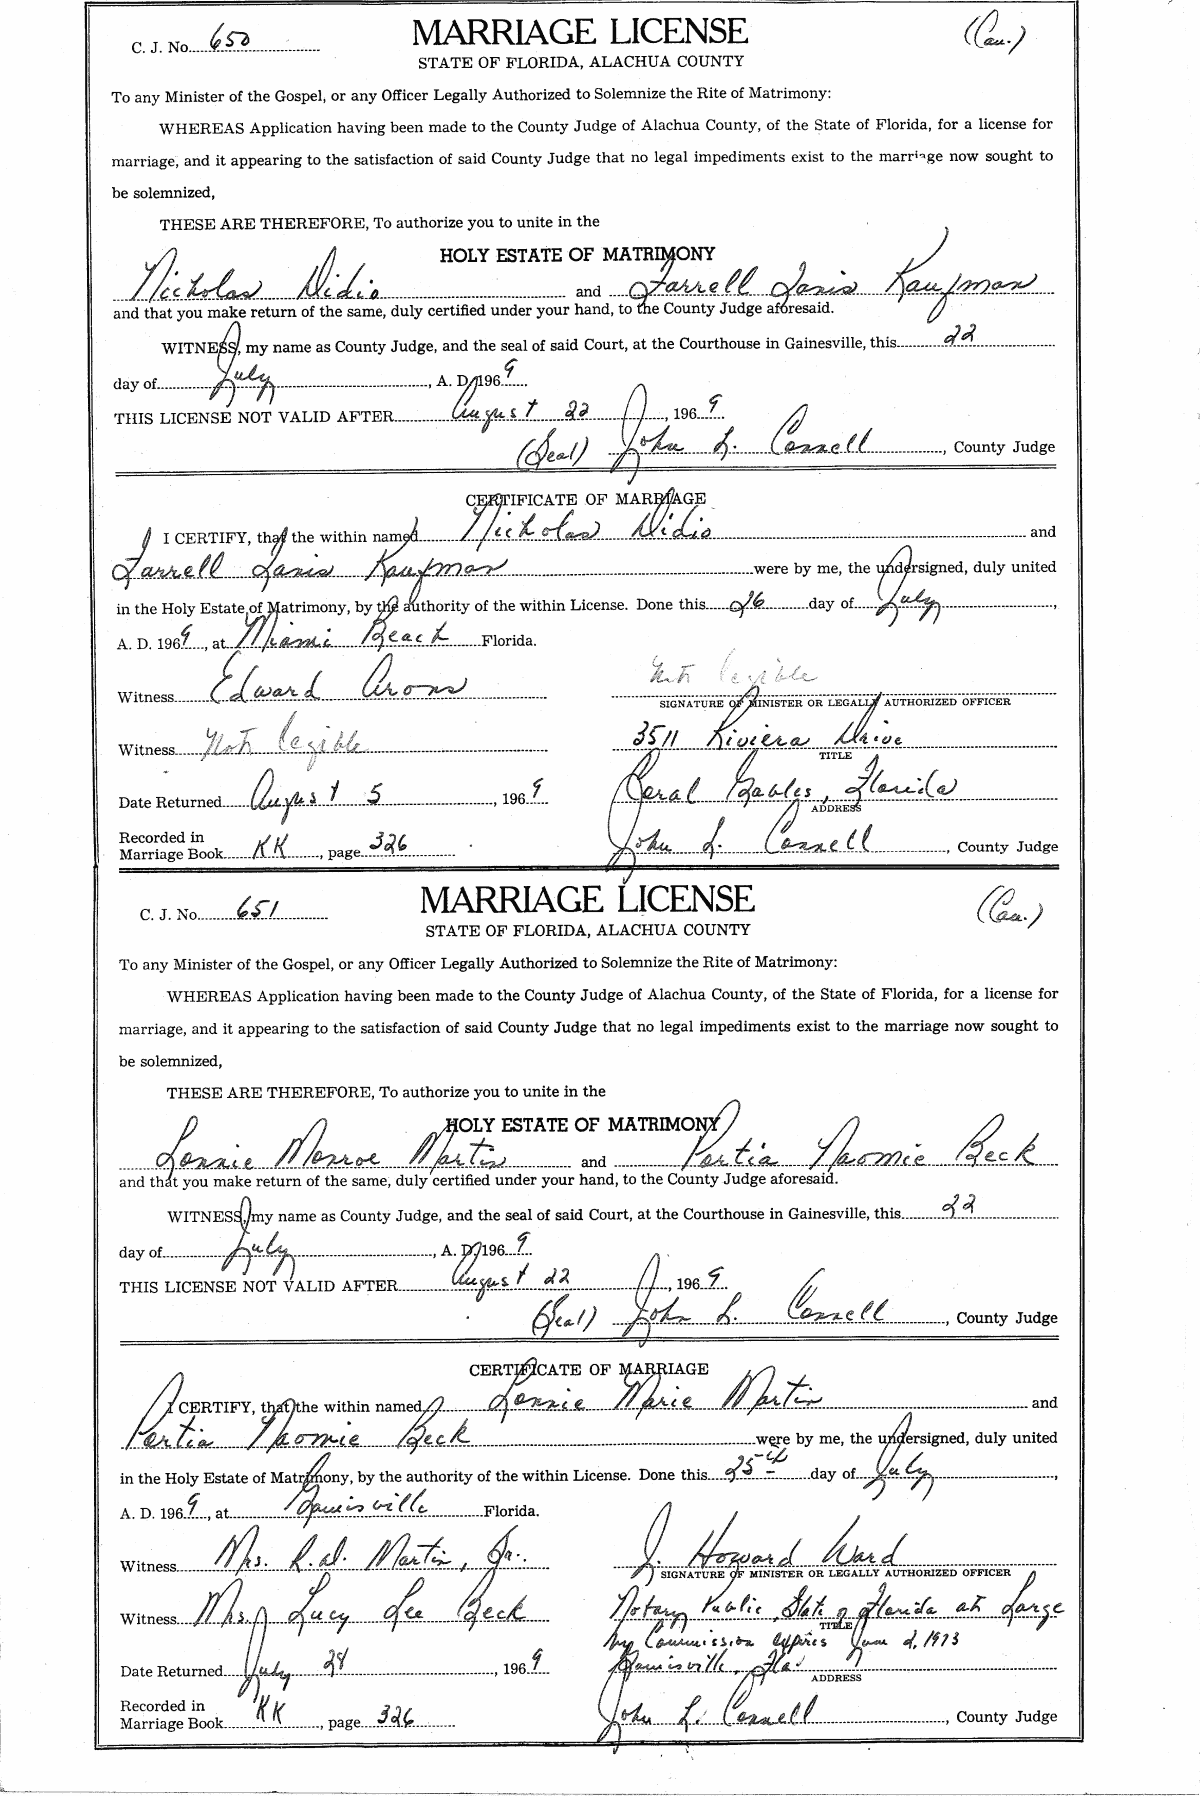 C. J. No. 650 MARRIAGE LICENSE (Cau.)
STATE OF FLORIDA, ALACHUA COUNTY
To any Minister of the Gospel, or any Officer Legally Authorized to Solemnize the Rite of Matrimony:
WHEREAS Application having been made to the County Judge of Alachua County, of the State of Florida, for a license for
marriage, and it appearing to the satisfaction of said County Judge that no legal impediments exist to the marriage now sought to
be solemnized,
THESE ARE THEREFORE, To authorize you to unite in the
HOLY ESTATE OF MATRIMONY
Nicholas Didio and Farrell Janis Kaufman
and that you make return of the same, duly certified under your hand, to the County Judge aforesaid.
WITNESS, my name as County Judge, and the seal of said Court, at the Courthouse in Gainesville, this 22
day of July, A. D. 1969
THIS LICENSE NOT VALID AFTER August 22, 1969
(Seal) John L. Connell, County Judge
CERTIFICATE OF MARRIAGE
I CERTIFY, that the within named Nicholas Didio and
Farrell Janis Kaufman were by me, the undersigned, duly united
in the Holy Estate of Matrimony, by the authority of the within License. Done this 26 day of July,
A. D. 1969, at Miami Beach Florida.
Witness Edward Arons Not legible
SIGNATURE OF MINISTER OR LEGALLY AUTHORIZED OFFICER
Witness Not legible 3511 Riviera Drive
TITLE
Date Returned August 5, 1969 Coral Gables, Florida
ADDRESS
Recorded in
Marriage Book KK, page 326 John L. Connell, County Judge
C. J. No. 651 MARRIAGE LICENSE (Cau.)
STATE OF FLORIDA, ALACHUA COUNTY
To any Minister of the Gospel, or any Officer Legally Authorized to Solemnize the Rite of Matrimony:
WHEREAS Application having been made to the County Judge of Alachua County, of the State of Florida, for a license for
marriage, and it appearing to the satisfaction of said County Judge that no legal impediments exist to the marriage now sought to
be solemnized,
THESE ARE THEREFORE, To authorize you to unite in the
HOLY ESTATE OF MATRIMONY
Lonnie Monroe Martin and Portia Naomie Beck
and that you make return of the same, duly certified under your hand, to the County Judge aforesaid.
WITNESS, my name as County Judge, and the seal of said Court, at the Courthouse in Gainesville, this 22
day of July, A. D. 1969
THIS LICENSE NOT VALID AFTER August 22, 1969
(Seal) John L. Connell, County Judge
CERTIFICATE OF MARRIAGE
I CERTIFY, that the within named Lonnie Marie Martin and
Portia Naomie Beck were by me, the undersigned, duly united
in the Holy Estate of Matrimony, by the authority of the within License. Done this 25th day of July,
A. D. 1969, at Gainesville Florida.
Witness Mrs. R. W. Martin, Jr. J. Howard Ward
SIGNATURE OF MINISTER OR LEGALLY AUTHORIZED OFFICER
Witness Mrs. Lucy Lee Beck Notary Public, State of Florida at Large
TITLE
My Commission expires June 2, 1973
Date Returned July 28, 1969 Gainesville, Fla.
ADDRESS
Recorded in
Marriage Book KK, page 326 John L. Connell, County Judge